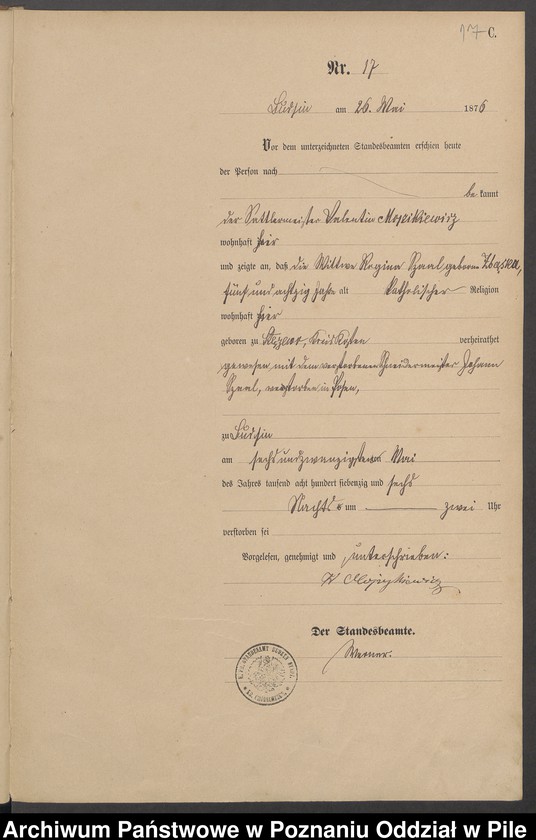 17 C.
Nr. 17
am 26. Mai 1876
Vor dem unterzeichneten Standesbeamten erschien heute
der Person nach
bekannt
der Sattlermeister Valentin
wohnhaft hier
und zeigte an, daß die Wittwe Regina geborene
fünf und achtzig Jahr alt katholischer Religion
wohnhaft hier
geboren zu Kreis Kosten verheirathet
gewesen mit dem verstorbenen Schneidermeister Johann
verstorben in Posen,
zu
am sechsundzwanzigsten Mai
des Jahres tausend acht hundert siebenzig und sechs
Nachts um zwei Uhr
verstorben sei
Vorgelesen, genehmigt und unterschrieben:
Der Standesbeamte.
Werner.
Archiwum Państwowe w Poznaniu Oddział w Pile